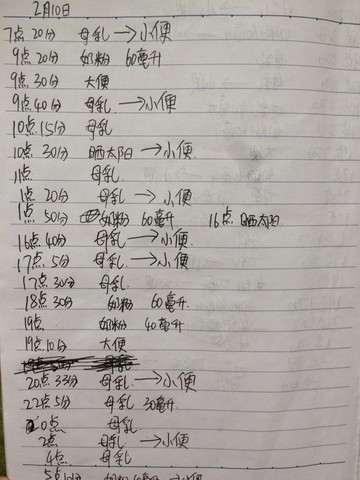 2月10日
7点 20分 母乳 → 小便
9点 20分 奶粉 60毫升
9点 30分 大便
9点 40分 母乳 → 小便
10点 15分 母乳
10点 30分 晒太阳 → 小便
11点 母乳
1点 20分 母乳 → 小便
1点 50分 奶粉 60毫升 16点 晒太阳
16点 40分 母乳 → 小便
17点 5分 母乳 → 小便
17点 30分 母乳
18点 30分 奶粉 60毫升
19点 奶粉 40毫升
19点 10分 大便
20点 33分 母乳 → 小便
22点 5分 母乳 30毫升
0点 母乳
2点 母乳 → 小便
4点 母乳